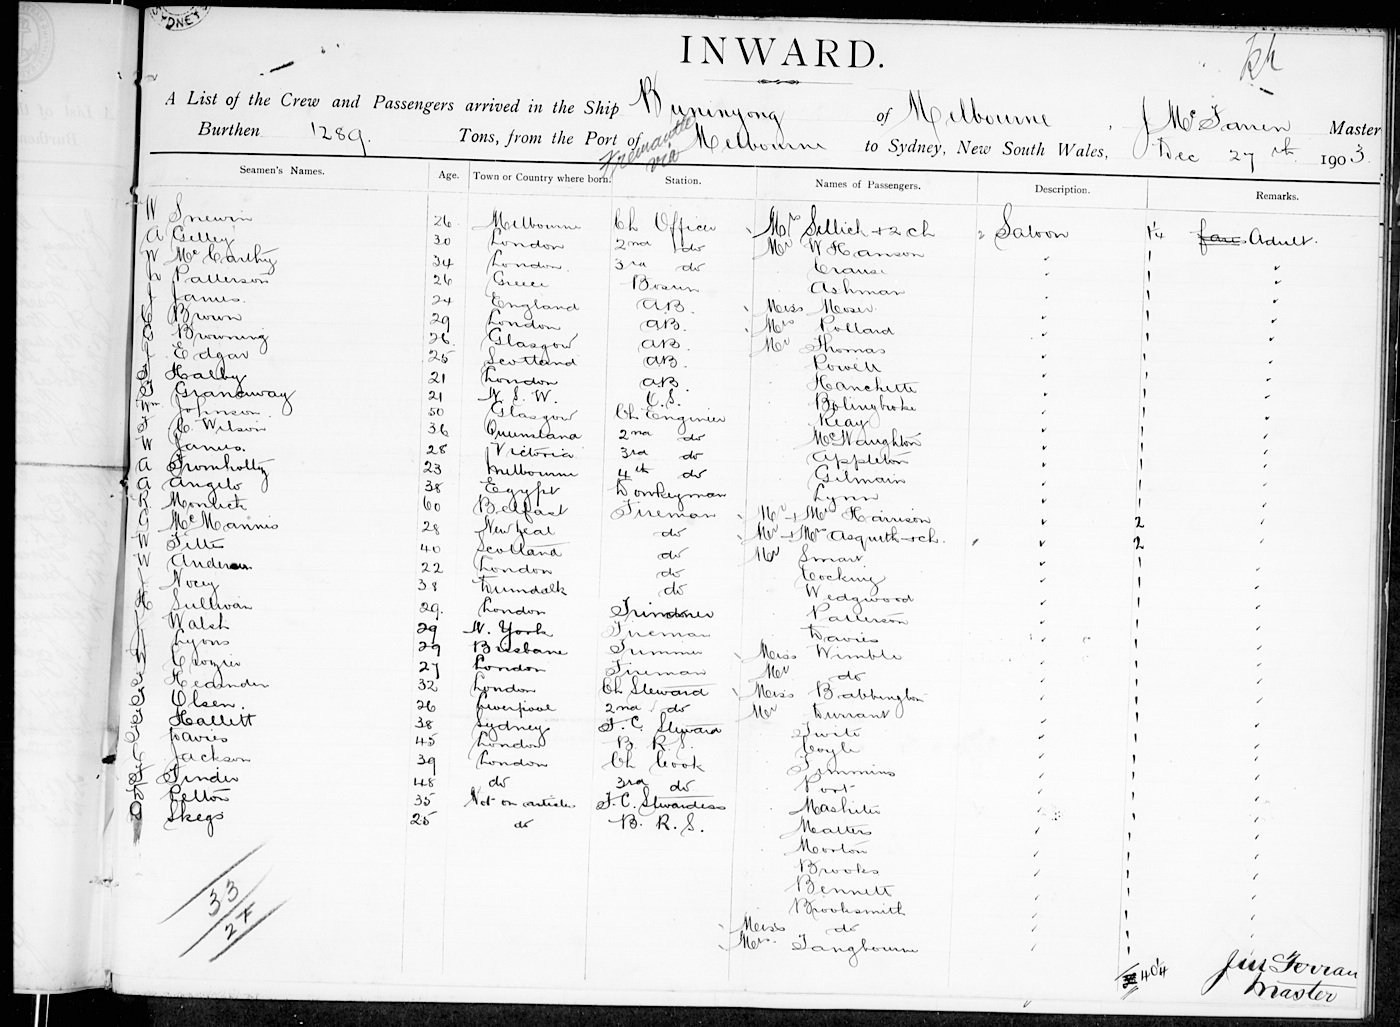 SYDNEY
INWARD.
A List of the Crew and Passengers arrived in the Ship Buninyong of Melbourne, J Mc Master
Burthen 1289. Tons, from the Port of Fremantle via Melbourne to Sydney, New South Wales, Dec 27th 1903.
Seamen's Names. Age. Town or Country where born. Station. Names of Passengers. Description. Remarks.
W 26 Melbourne Ch Officer Mrs Sillich + 2 ch Saloon 1¼ Adult.
A Gilley 30 London 2nd do Mr W Hanson 1
W McCarthy 34 London 3rd do Crause 1
Patterson 26 Greece Bosun Ashman 1
J James 24 England A.B. Miss Moser 1
Brown 29 London A.B. Mrs Pollard 1
Browning 26 Glasgow A.B. Mr Thomas 1
J Edgar 25 Scotland A.B. Powell 1
Halby 21 London A.B. Hanchette 1
Granaway 21 N. S. W. O.S. Bolingbroke 1
Wm Johnson 50 Glasgow Ch Engineer Reay 1
C Wilson 36 Queensland 2nd do McNaughton 1
W James 28 Victoria 3rd do Appleton 1
A Tromholtz 23 Melbourne 4th do Gilmain 1
A Angelo 38 Egypt Donkeyman Lynn 1
R 60 Belfast Fireman Mr + Mrs Harrison 2
McMannis 28 New Zeal do Mr + Mrs Asquith + ch. 2
W Tilts 40 Scotland do Mr Smart 1
W Anderson 22 London do Cocking 1
Nocy 38 Dundalk do Wedgwood 1
Sullivan 29 London Patterson 1
Walsh 29 N. York Fireman Davies 1
Lyons 29 Brisbane Trimmer Miss Wimble 1
Crozier 27 London Fireman Mr do 1
32 London Ch Steward Miss Babbington 1
Olsen 26 Liverpool 2nd do Mr Durrant 1
Hallett 38 Sydney F. C. Steward 1
Davies 45 London B. R. S. Coyle 1
Jackson 39 London Ch Cook Timmins 1
Tinder 48 do 3rd do Port 1
Pelton 35 Not on articles F. C. Stewardess Mashiter 1
Skegs 25 do B. R. S. Matters 1
Morton 1
Brooks 1
Bennett 1
Brooksmith 1
Miss do 1
Mrs. Tangbourne 1
33
27
40¼
Master